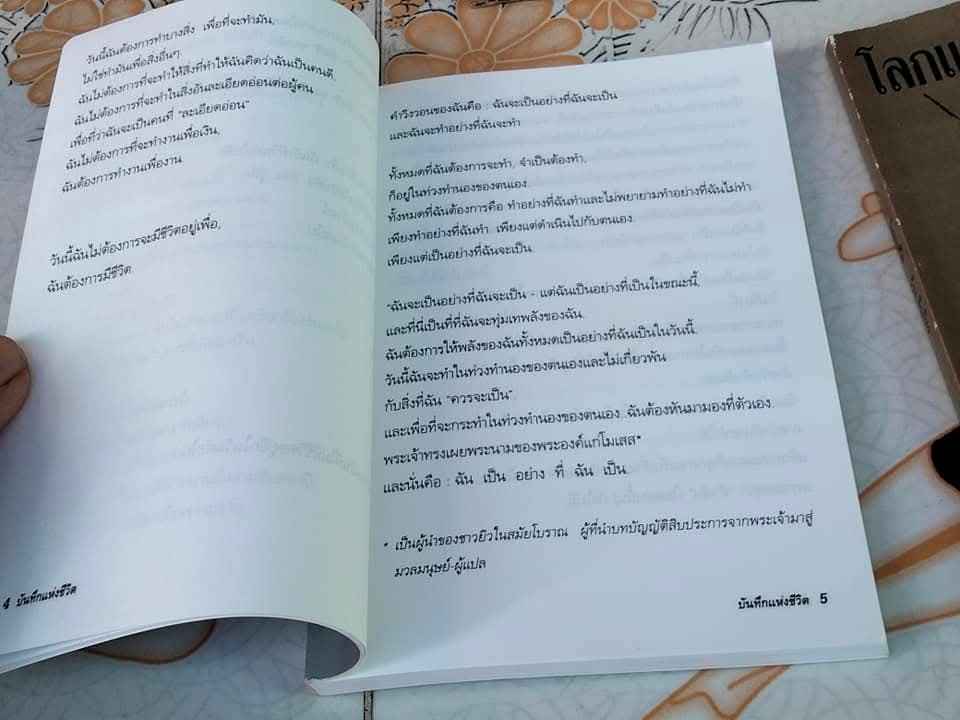 วันนี้ฉันต้องการทำบางสิ่ง เพื่อที่จะทำมัน,
ไม่ใช่ทำมันเพื่อสิ่งอื่นๆ.
ฉันไม่ต้องการที่จะทำให้สิ่งที่ทำให้ฉันคิดว่าฉันเป็นคนดี.
ฉันไม่ต้องการที่จะทำในสิ่งอันละเอียดอ่อนต่อผู้คน
เพื่อที่ว่าฉันจะเป็นคนที่ "ละเอียดอ่อน"
ฉันไม่ต้องการที่จะทำงานเพื่อเงิน,
ฉันต้องการทำงานเพื่องาน.
วันนี้ฉันไม่ต้องการจะมีชีวิตอยู่เพื่อ,
ฉันต้องการมีชีวิต.
4 บันทึกแห่งชีวิต
คำวิงวอนของฉันคือ : ฉันจะเป็นอย่างที่ฉันจะเป็น
และฉันจะทำอย่างที่ฉันจะทำ
ทั้งหมดที่ฉันต้องการจะทำ, จำเป็นต้องทำ,
ก็อยู่ในท่วงทำนองของตนเอง.
ทั้งหมดที่ฉันต้องการคือ ทำอย่างที่ฉันทำและไม่พยายามทำอย่างที่ฉันไม่ทำ
เพียงทำอย่างที่ฉันทำ. เพียงแต่ดำเนินไปกับตนเอง.
เพียงแต่เป็นอย่างที่ฉันจะเป็น.
"ฉันจะเป็นอย่างที่ฉันจะเป็น - แต่ฉันเป็นอย่างที่เป็นในขณะนี้,
และที่นี่เป็นที่ที่ฉันจะทุ่มเทพลังของฉัน.
ฉันต้องการให้พลังของฉันทั้งหมดเป็นอย่างที่ฉันเป็นในวันนี้.
วันนี้ฉันจะทำในท่วงทำนองของตนเองและไม่เกี่ยวพัน
กับสิ่งที่ฉัน "ควรจะเป็น".
และเพื่อที่จะกระทำในท่วงทำนองของตนเอง..ฉันต้องหันมามองที่ตัวเอง.
พระเจ้าทรงเผยพระนามของพระองค์แก่โมเสส*
และนั่นคือ : ฉัน เป็น อย่าง ที่ ฉัน เป็น.
* เป็นผู้นำของชาวยิวในสมัยโบราณ ผู้ที่นำบทบัญญัติสิบประการจากพระเจ้ามาสู่
มวลมนุษย์-ผู้แปล
บันทึกแห่งชีวิต 5